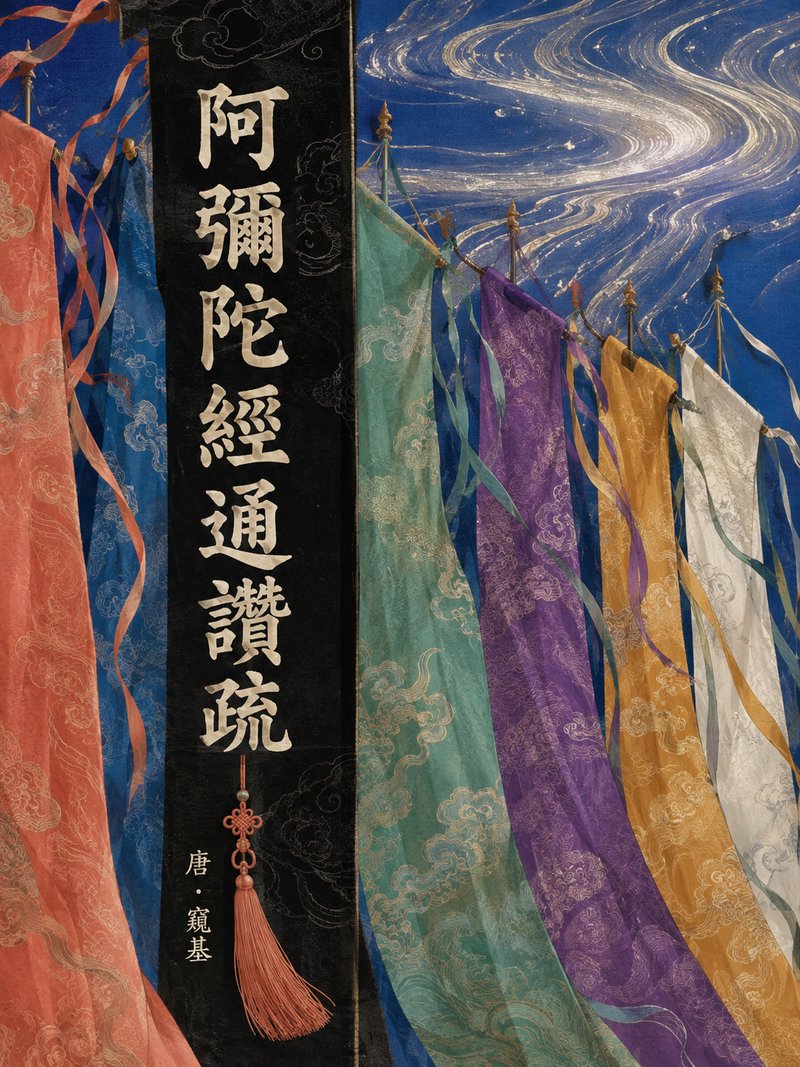 阿彌陀經通讚疏
唐·窺基